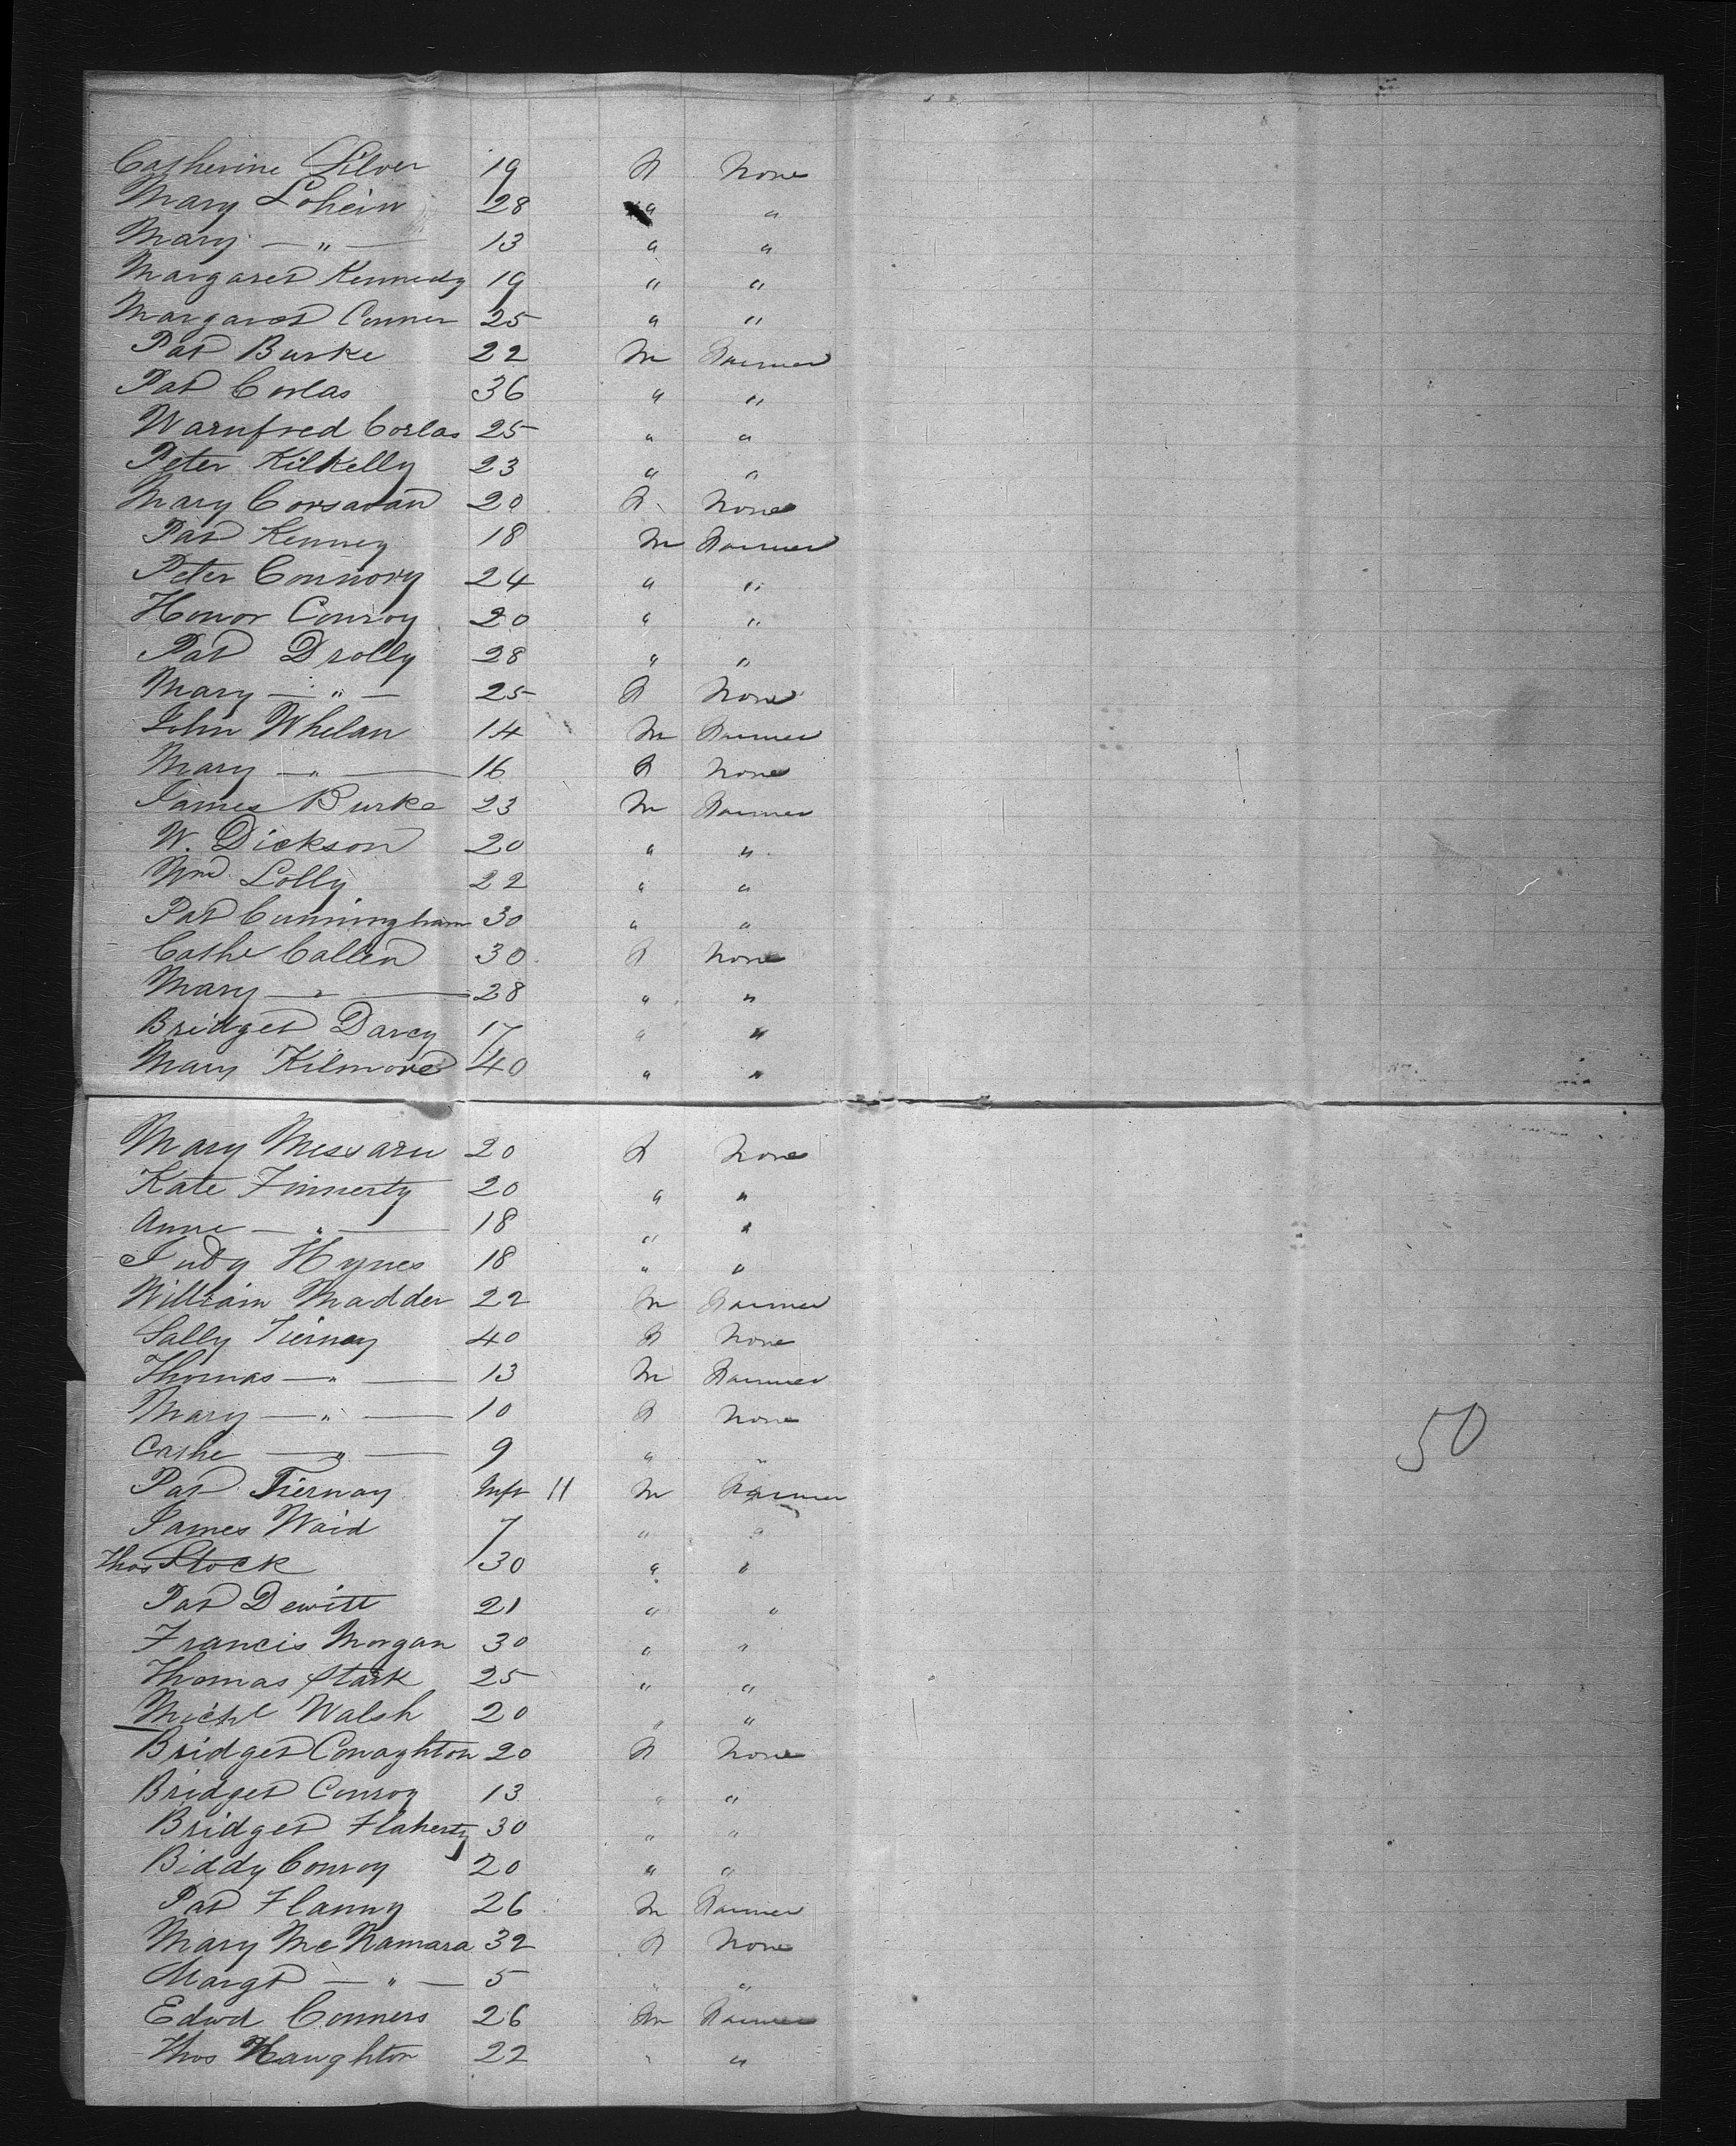 Catherine Silver 19 F None
Mary Lohein 28 " "
Mary — " — 13 " "
Margaret Kennedy 19 " "
Margaret Conner 25 " "
Pat Burke 22 M Farmer
Pat Corlas 36 " "
Warnfred Corlas 25 " "
Peter Kilkelly 23 " "
Mary Corsavan 20 F None
Pat Kenney 18 M Farmer
Peter Connory 24 " "
Honor Conroy 20 " "
Pat Drolly 28 " "
Mary — " — 25 F None
John Whelan 14 M Farmer
Mary — " — 16 F None
James Burke 23 M Farmer
W. Dickson 20 " "
Wm Lolly 22 " "
Pat Cunningham 30 " "
Cathe Callen 30 F None
Mary — " — 28 " "
Bridget Darcy 17 " "
Mary Kilmore 40 " "
Mary Messaru 20 F None
Kate Finnerty 20 " "
Anne — " — 18 " "
Judy Hynes 18 " "
William Madden 22 M Farmer
Sally Tierney 40 F None
Thomas — " — 13 M Farmer
Mary — " — 10 F None
Cathe — " — 9 " "
50
Pat Tiernay Inft 11 M Farmer
James Waid 7 " "
Thos Stock 30 " "
Pat Dewitt 21 " "
Francis Morgan 30 " "
Thomas Stark 25 " "
Michl Walsh 20 " "
Bridget Conaghton 20 F None
Bridget Conroy 13 " "
Bridget Flaherty 30 " "
Biddy Conroy 20 " "
Pat Flanny 26 M Farmer
Mary McNamara 32 F None
Margt — " — 5 " "
Edwd Conners 26 M Farmer
Thos Haughton 22 " "